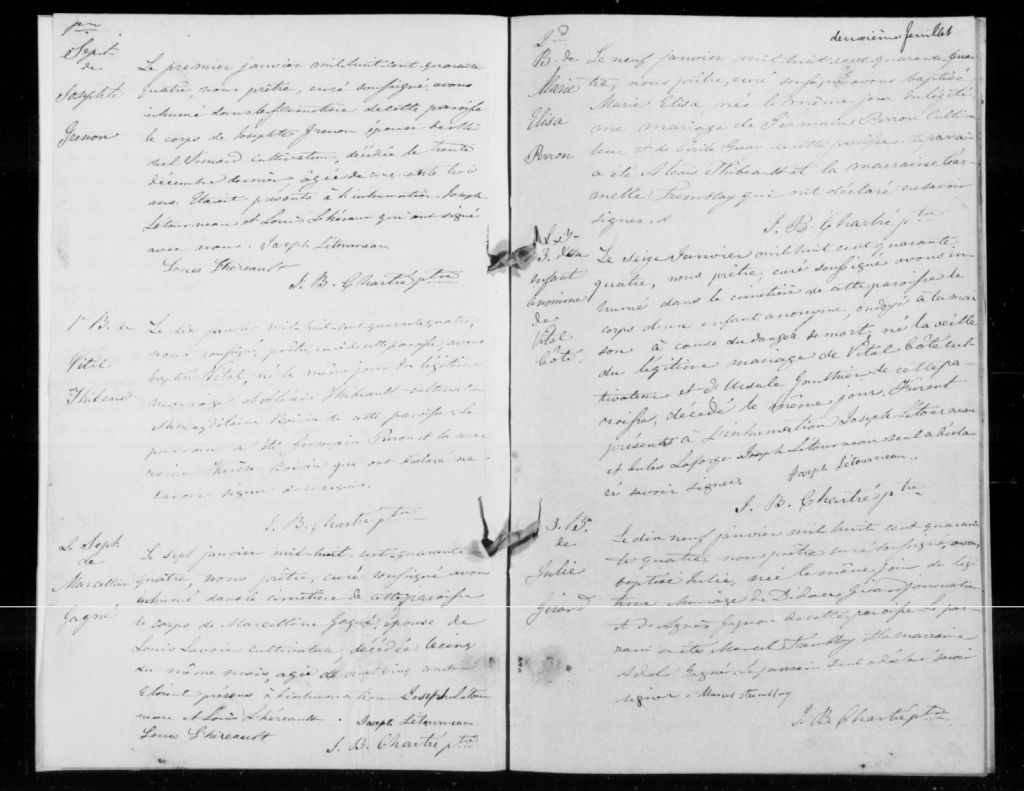 1re
Sept.
de
Josephte
Grenon
Le premier janvier mil huit cent quarante
quatre, nous prêtre, curé soussigné, avons
inhumé dans le cimetière de cette paroisse
le corps de Josephte Grenon épouse de Mi
chel Simard cultivateur, décédée le trente
décembre dernier âgée de cinquante trois
ans. Etaient présents à l'inhumation Joseph
Létourneau et Louis Lhéreault qui ont signé
avec nous. Joseph Létourneau
Louis Lhéreault
J. B. Chartré ptre
1er B. de
Vital
Thibeault
Le dix janvier mil huit cent quarante quatre,
nous soussigné, prêtre, curé de cette paroisse, avons
baptisé Vital, né le même jour du légitime
mariage Thibeault cultivateur
Boivin de cette paroisse. Le
parrain a été Germain Perron et la mar
raine Thérèse Boivin qui ont déclaré ne
savoir signer
J. B. Chartré ptre
2. Sept.
de
Marcelline
Gagné
Le sept janvier mil huit cent quarante
quatre, nous prêtre, curé, soussigné avons
inhumé dans le cimetière de cette paroisse
le corps de Marcelline Gagné, épouse de
Louis Lavoie cultivateur, décédée le cinq
du même mois agée de vingt cinq ans
Etaient présens à l'inhumation Joseph Létour
neau et Louis Lhéreault. Joseph Létourneau
Louis Lhéreault
J. B. Chartré ptre
deuxième feuillet
2d
B. de
Marie
Elisa
Perron
Le neuf janvier mil huit cent quarante qua
tre, nous prêtre, curé soussigné avons baptisé
Marie Elisa née le même jour du légiti
me mariage de Germain Perron Cultiva
teur et de Cécile Guay de cette paroisse. Le parrain
a été Alexis Thibeault et la marraine Car
melle Tremblay qui ont déclaré ne savoir
signer.
J. B. Chartré ptre
3. d'un
enfant
anonime
de
Vital
Côté.
Le seize Janvier mil huit cent quarante
quatre, nous prêtre, curé soussigné avons in
humé dans le cimetière de cette paroisse le
corps d'un enfant anonyme, ondoyé à la mai
son à cause du danger de mort, né la veille
du légitime mariage de Vital Côté cul
tivateur et d'Ursule Gaulthier de cette pa
roisse, décédé le même jour, Furent
présents à l'inhumation Joseph Létourneau
et Jules Laforge Joseph Létourneau seul a décla
ré savoir signer.
Joseph Létourneau.
J. B. Chartré ptre
3. B.
de
Julie
Girard
Le dix neuf janvier mil huit cent quaran
te quatre, nous prêtre curé soussigné, avons
baptisé Julie, née le même jour du légi
time Mariage de Didace Girard journalier
et de Agnès Gagnon de cette paroisse Le par
rain a été Marcel Tremblay et la marraine
Adel Gagné. Le parrain seul a déclaré savoir
signer. Marcel Tremblay
J. B. Chartré ptre